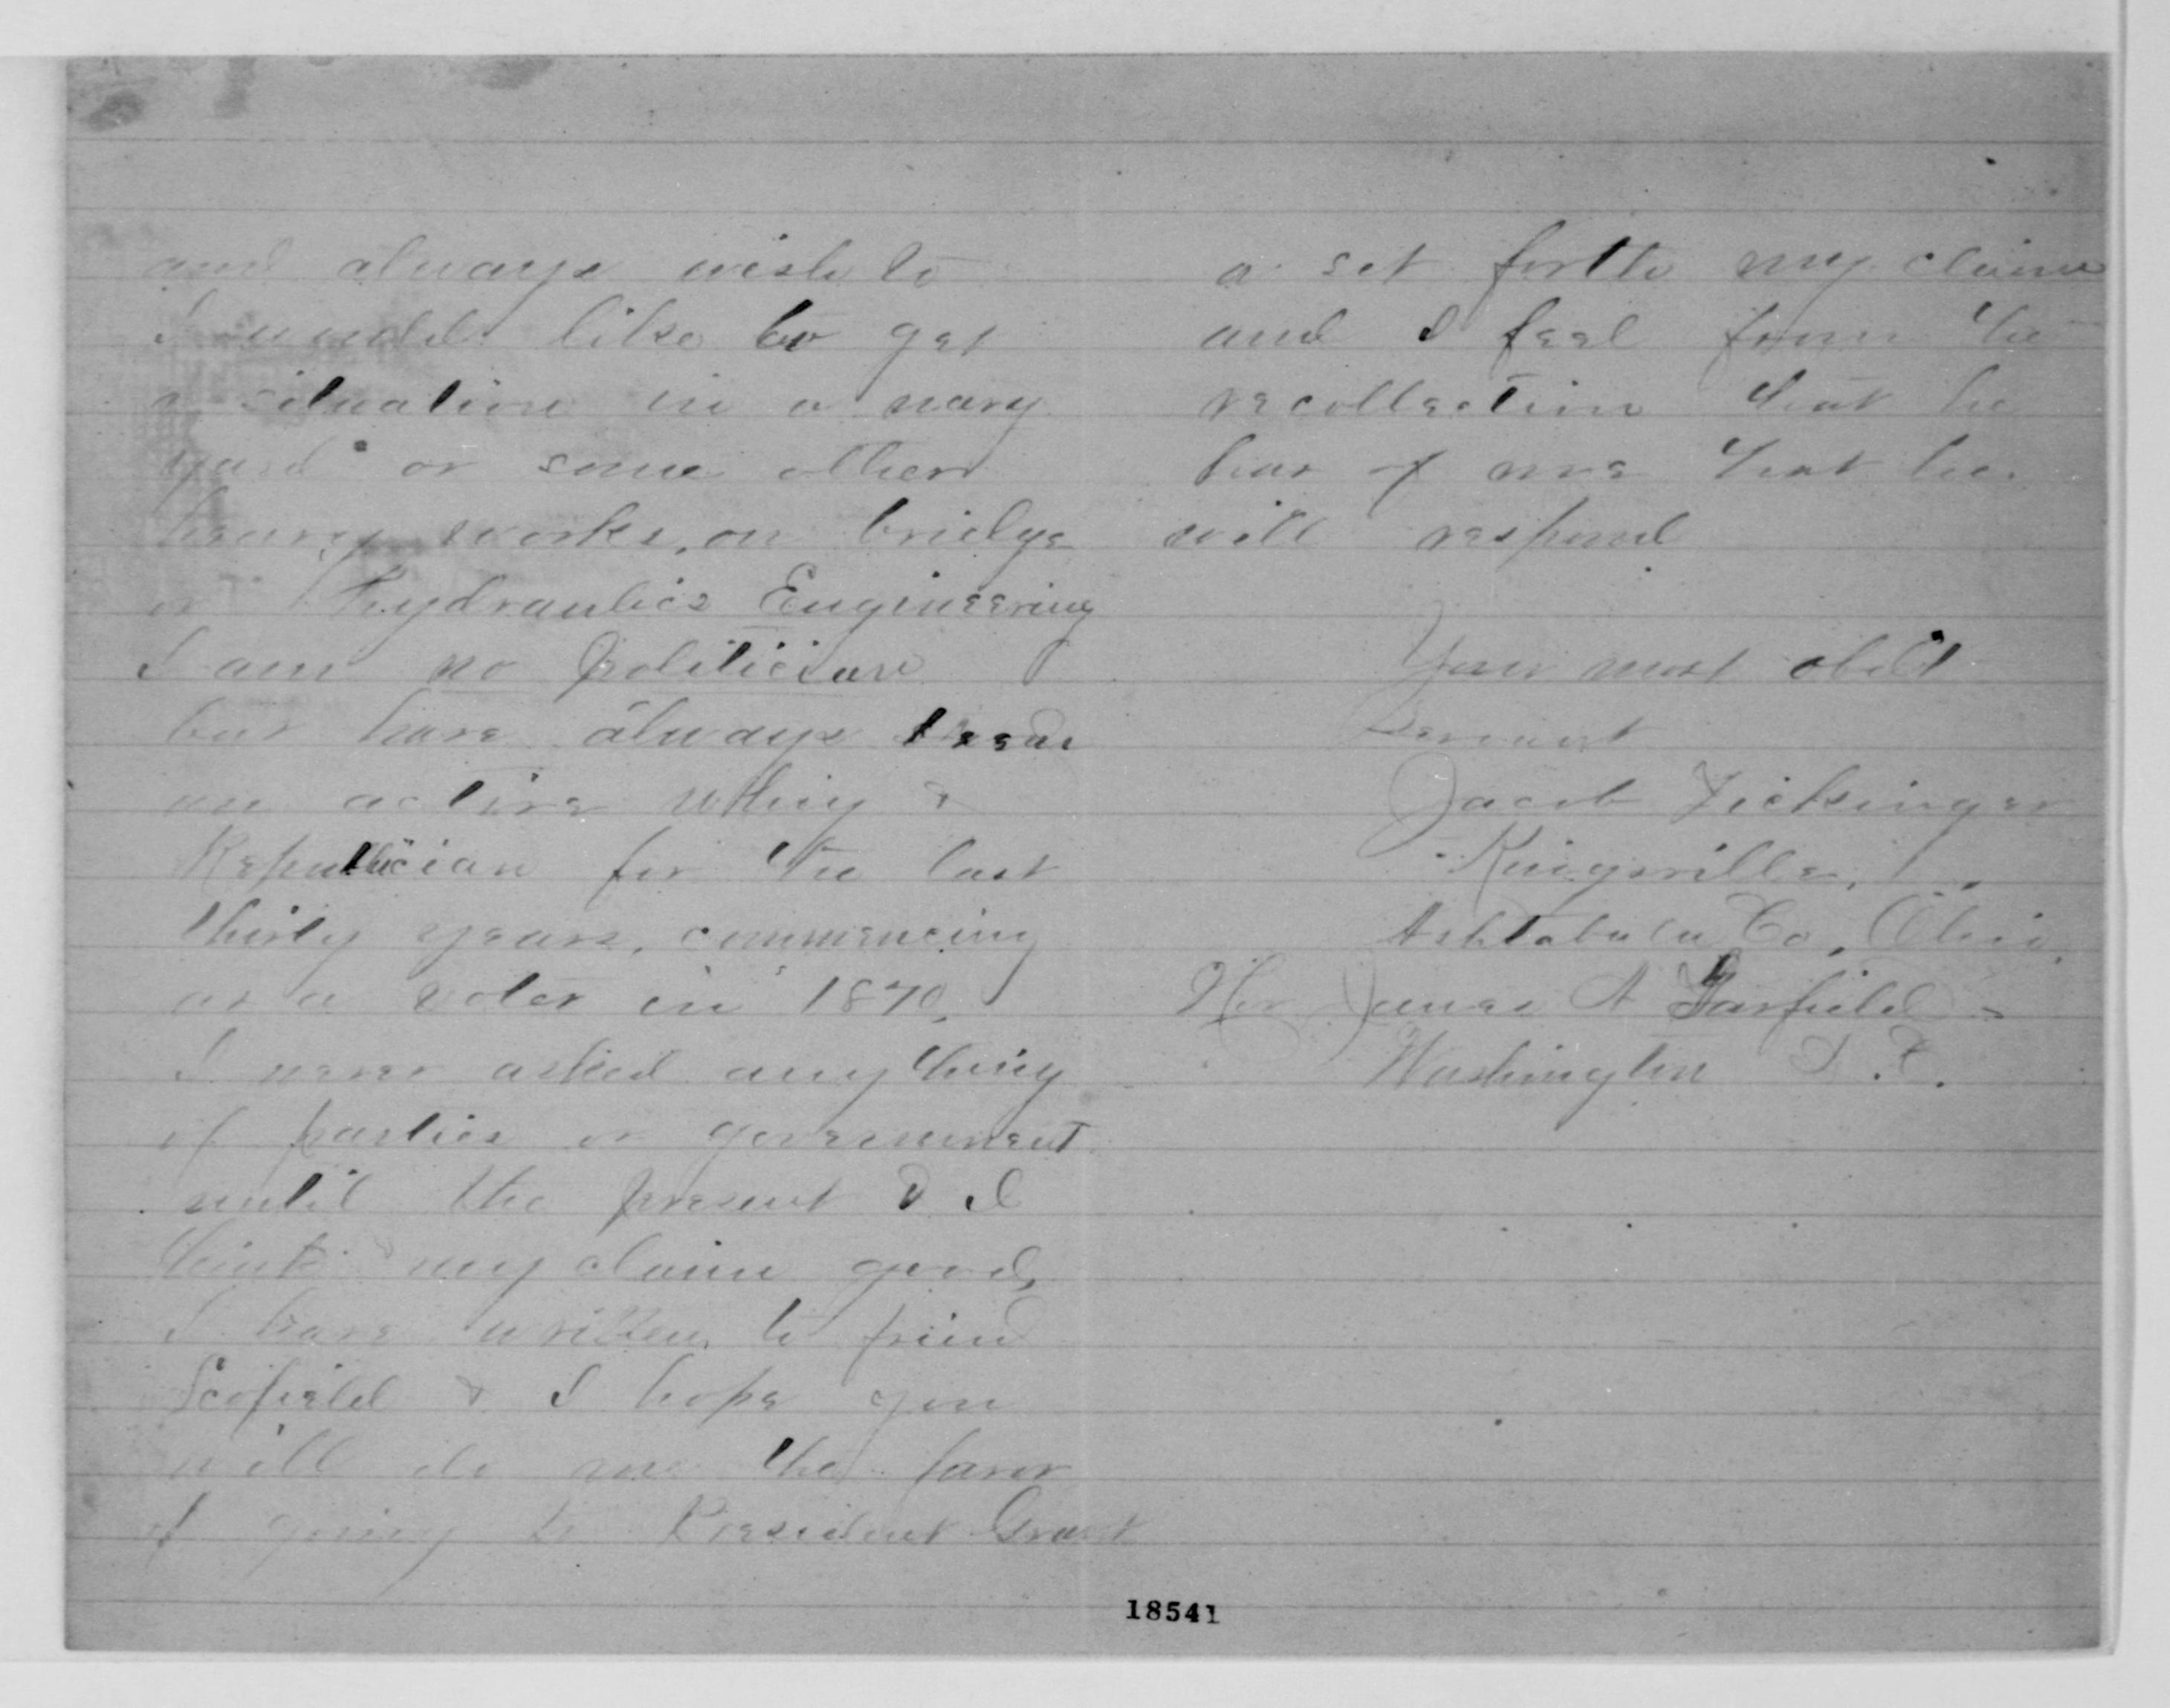 and always wish to
I would like to get
a situation in a navy
yard or some other
heavy works, on bridge
or Hydraulics Engineering
I am no politician
but have always been
an active whig &
Republician for the last
thirty years, commencing
as a voter in 1840,
I never asked any thing
of parties or government
until the present & I
think my claim good,
I have written to friend
Scofield & I hope you
will do me the favor
of going to President Grant
a set forth my claim
and I feel from the
recollection that he
has of me that he
will respond
Your most obdt
Servant
Jacob Ficksinger
Kingsville,
Ashtabula Co, Ohio,
Hon James A Garfield
Washington D.C.
18541